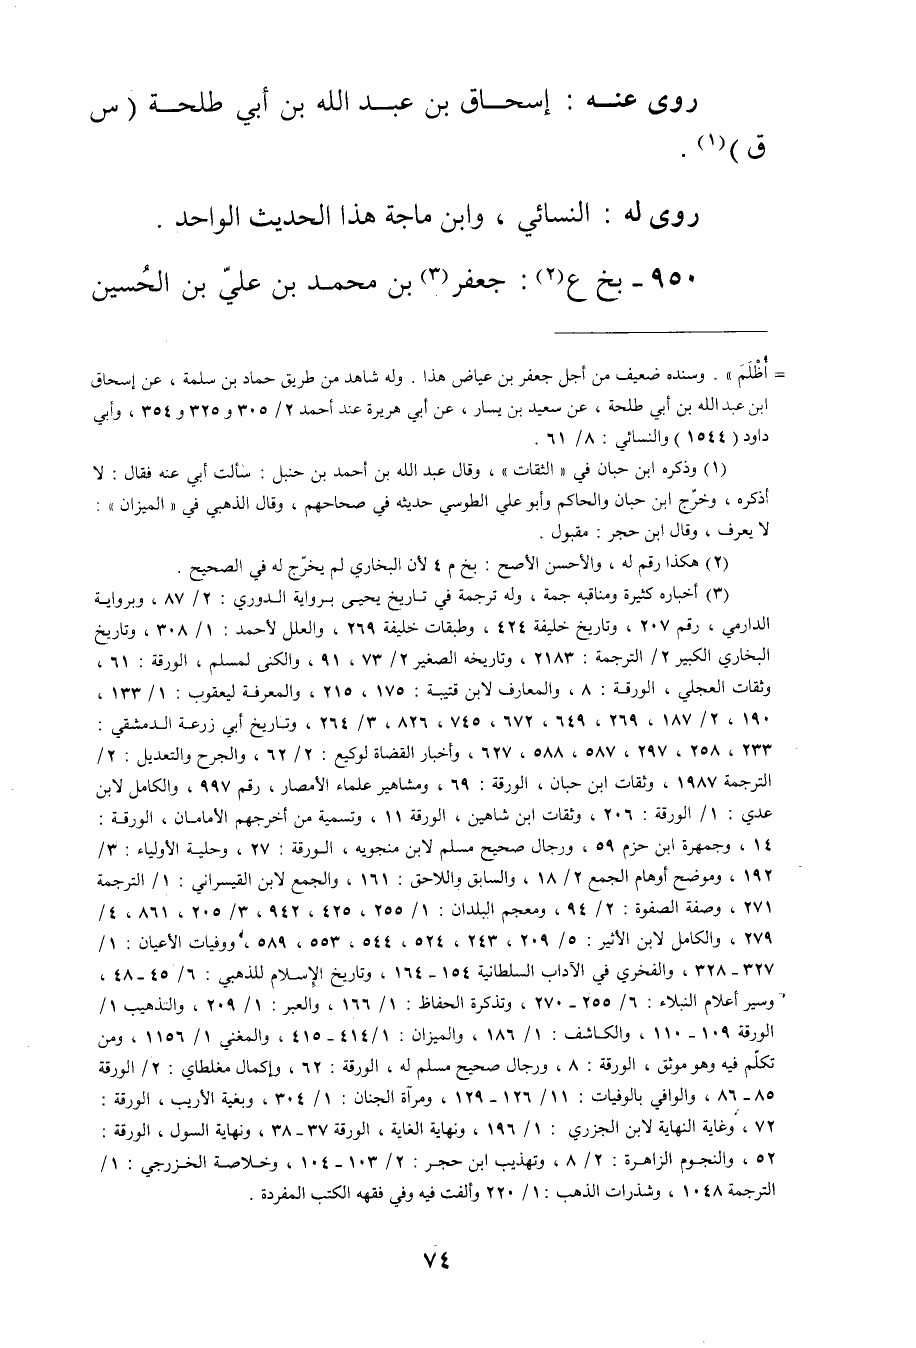 روى عنه : إسحاق بن عبد الله بن أبي طلحة ( س
ق )(١) .
روى له : النسائي ، وابن ماجة هذا الحديث الواحد .
٩٥٠ ـ بخ ع(٢) : جعفر(٣) بن محمد بن عليّ بن الحُسين
= أُظْلَمَ » . وسنده ضعيف من أجل جعفر بن عياض هذا . وله شاهد من طريق حماد بن سلمة ، عن إسحاق
ابن عبد الله بن أبي طلحة ، عن سعيد بن يسار ، عن أبي هريرة عند أحمد ٢/ ٣٠٥ و ٣٢٥ و ٣٥٤ ، وأبي
داود ( ١٥٤٤ ) والنسائي : ٨/ ٦١ .
(١) وذكره ابن حبان في « الثقات » ، وقال عبد الله بن أحمد بن حنبل : سألت أبي عنه فقال : لا
أذكره ، وخرّج ابن حبان والحاكم وأبو علي الطوسي حديثه في صحاحهم ، وقال الذهبي في « الميزان » :
لا يعرف ، وقال ابن حجر : مقبول .
(٢) هكذا رقم له ، والأحسن الأصح : بخ م ٤ لأن البخاري لم يخرّج له في الصحيح .
(٣) أخباره كثيرة ومناقبه جمة ، وله ترجمة في تاريخ يحيى برواية الدوري : ٢/ ٨٧ ، وبرواية
الدارمي ، رقم ٢٠٧ ، وتاريخ خليفة ٤٢٤ ، وطبقات خليفة ٢٦٩ ، والعلل لأحمد : ١/ ٣٠٨ ، وتاريخ
البخاري الكبير ٢/ الترجمة : ٢١٨٣ ، وتاريخه الصغير ٢/ ٧٣ ، ٩١ ، والكنى لمسلم ، الورقة : ٦١ ،
وثقات العجلي ، الورقة : ٨ ، والمعارف لابن قتيبة : ١٧٥ ، ٢١٥ ، والمعرفة ليعقوب : ١/ ١٣٣ ،
١٩٠ ، ٢/ ١٨٧ ، ٢٦٩ ، ٦٤٩ ، ٦٧٢ ، ٧٤٥ ، ٨٢٦ ، ٣/ ٢٦٤ ، وتاريخ أبي زرعة الدمشقي :
٢٣٣ ، ٢٥٨ ، ٢٩٧ ، ٥٨٧ ، ٥٨٨ ، ٦٢٧ ، وأخبار القضاة لوكيع : ٢/ ٦٢ ، والجرح والتعديل : ٢/
الترجمة ١٩٨٧ ، وثقات ابن حبان ، الورقة : ٦٩ ، ومشاهير علماء الأمصار ، رقم ٩٩٧ ، والكامل لابن
عدي : ١/ الورقة : ٢٠٦ ، وثقات ابن شاهين ، الورقة ١١ ، وتسمية من أخرجهم الأمامان ، الورقة :
١٤ ، وجمهرة ابن حزم ٥٩ ، ورجال صحيح مسلم لابن منجويه ، الورقة : ٢٧ ، وحلية الأولياء : ٣/
١٩٢ ، وموضح أوهام الجمع ٢/ ١٨ ، والسابق واللاحق : ١٦١ ، والجمع لابن القيسراني : ١/ الترجمة
٢٧١ ، وصفة الصفوة : ٢/ ٩٤ ، ومعجم البلدان : ١/ ٢٥٥ ، ٤٢٥ ، ٩٤٢ ، ٣/ ٢٠٥ ، ٨٦١ ، ٤/
٢٧٩ ، والكامل لابن الأثير : ٥/ ٢٠٩ ، ٢٤٣ ، ٥٢٤ ، ٥٤٤ ، ٥٥٣ ، ٥٨٩ ، ووفيات الأعيان : ١/
٣٢٧ ـ ٣٢٨ ، والفخري في الآداب السلطانية ١٥٤ ـ ١٦٤ ، وتاريخ الإسلام للذهبي : ٦/ ٤٥ ـ ٤٨ ،
وسير أعلام النبلاء : ٦/ ٢٥٥ ـ ٢٧٠ ، وتذكرة الحفاظ : ١/ ١٦٦ ، والعبر : ١/ ٢٠٩ ، والتذهيب ١/
الورقة ١٠٩ ـ ١١٠ ، والكاشف : ١/ ١٨٦ ، والميزان : ١/ ٤١٤ ـ ٤١٥ ، والمغني ١/ ١١٥٦ ، ومن
تكلّم فيه وهو موثق ، الورقة : ٨ ، ورجال صحيح مسلم له ، الورقة : ٦٢ ، وإكمال مغلطاي : ٢/ الورقة
٨٥ ـ ٨٦ ، والوافي بالوفيات : ١١/ ١٢٦ ـ ١٢٩ ، ومرآة الجنان : ١/ ٣٠٤ ، وبغية الأريب ، الورقة :
٧٢ ، وغاية النهاية لابن الجزري : ١/ ١٩٦ ، ونهاية الغاية ، الورقة ٣٧ ـ ٣٨ ، ونهاية السول ، الورقة :
٥٢ ، والنجوم الزاهرة : ٢/ ٨ ، وتهذيب ابن حجر : ٢/ ١٠٣ ـ ١٠٤ ، وخلاصة الخزرجي : ١/
الترجمة ١٠٤٨ ، وشذرات الذهب : ١/ ٢٢٠ وألفت فيه وفي فقهه الكتب المفردة .
٧٤